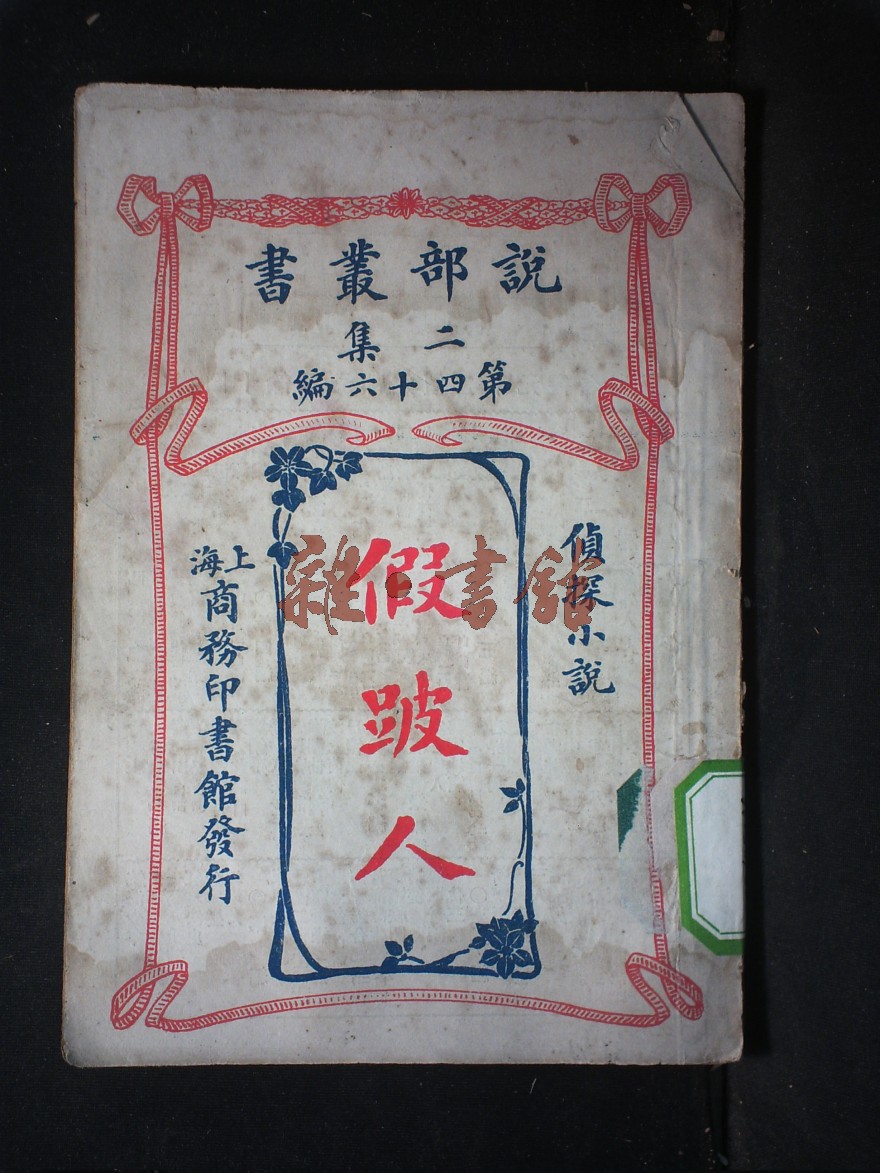 說部叢書
二集
第四十六編
偵探小說
假跛人
上海
商務印書館發行
雜·書館